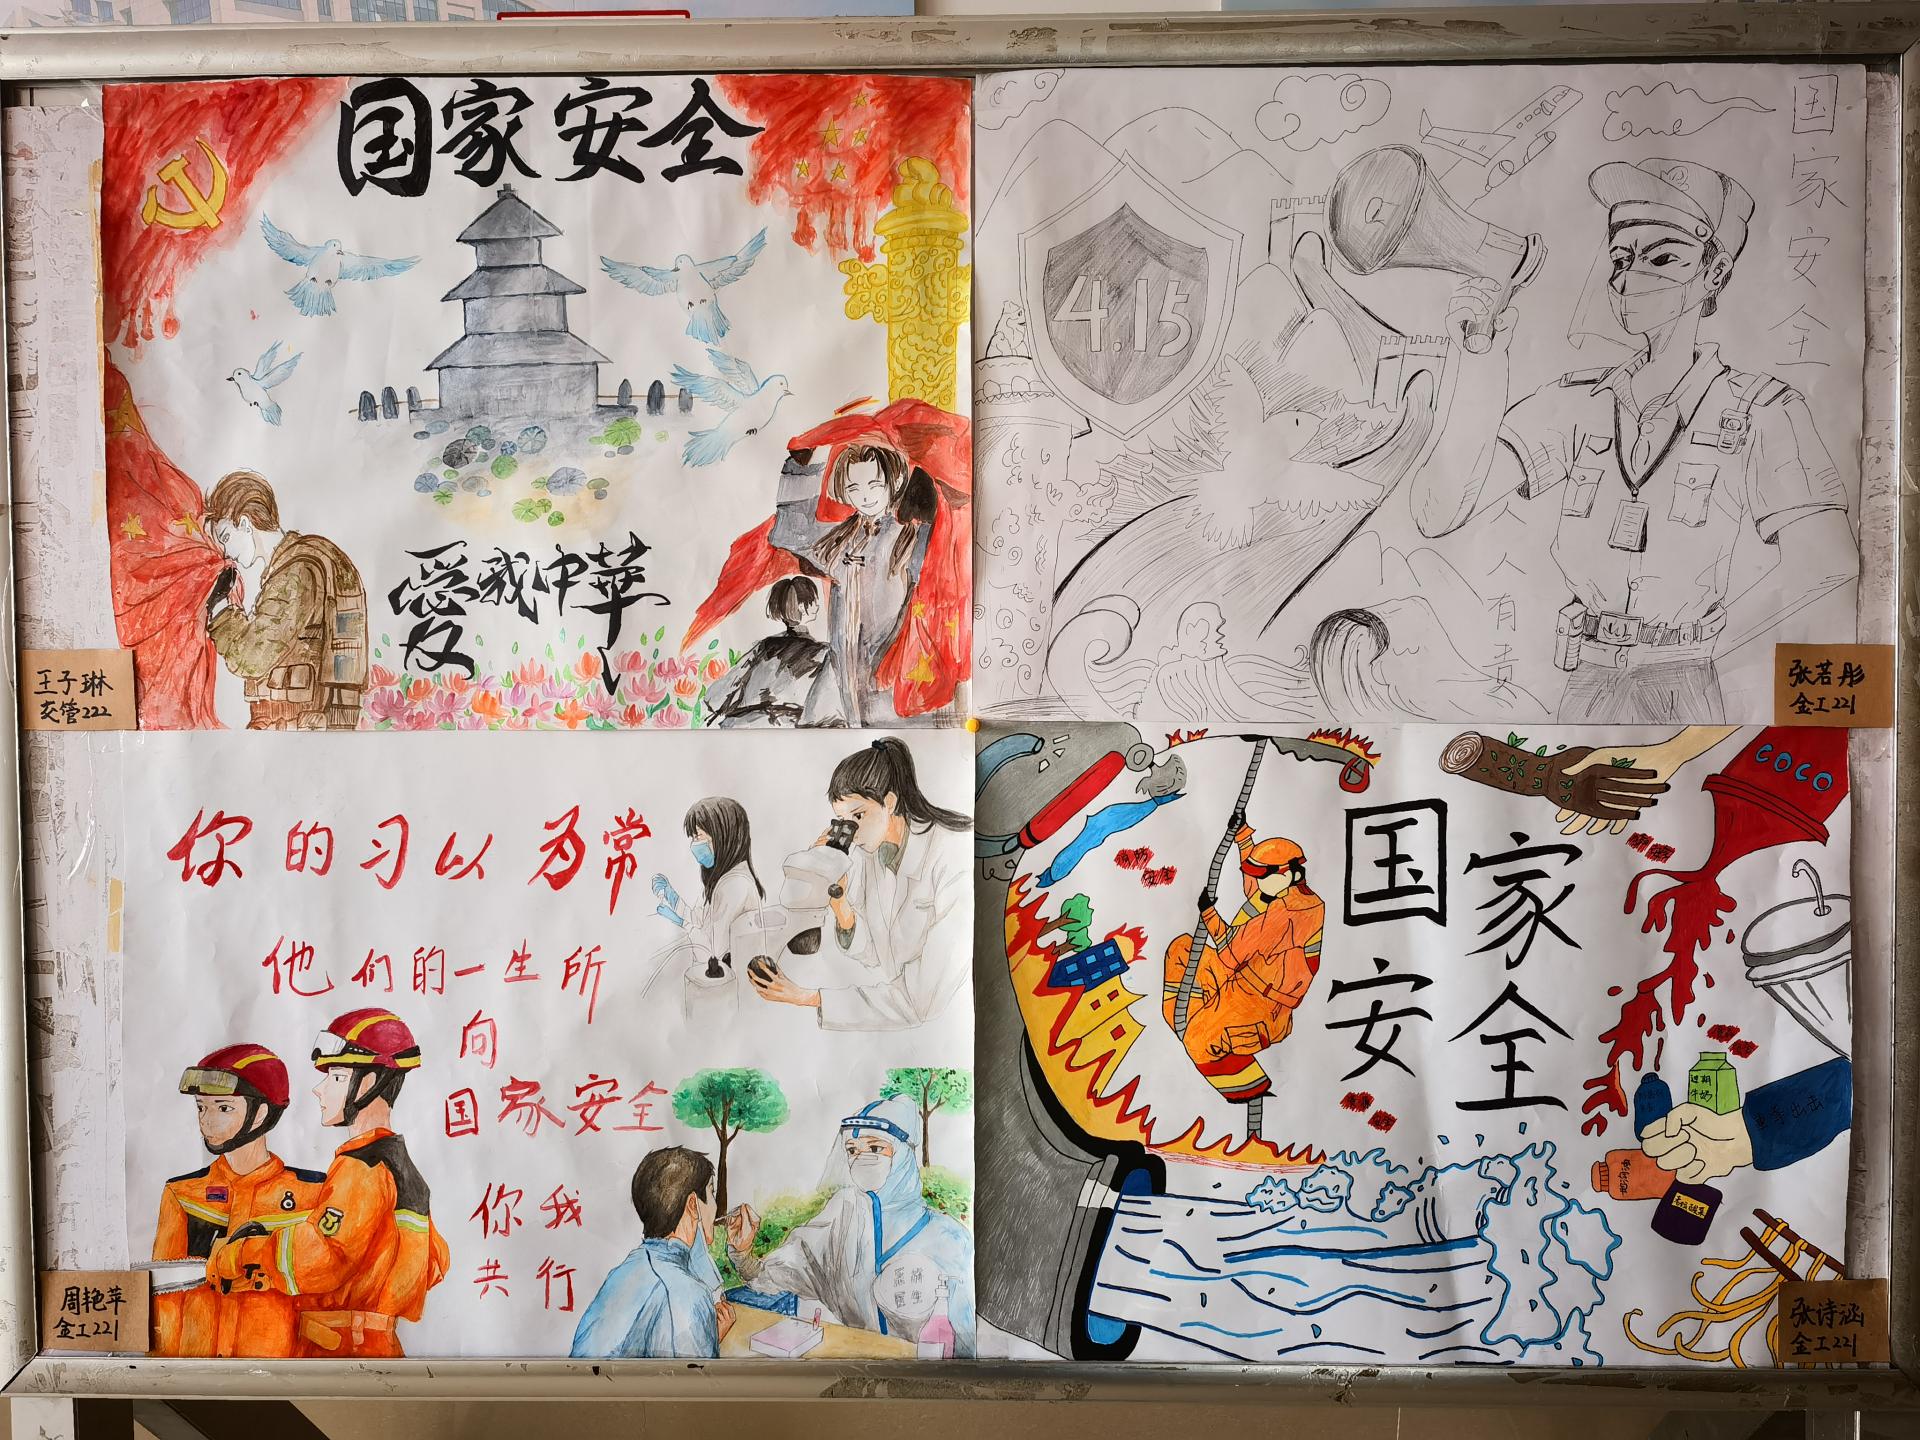 国家安全
愛我中華
王子琳
交管222
国家安全
4.15
人人有责
张若彤
金工221
你的习以为常
他们的一生所
向
国家安全
你我
共行
周艳苹
金工221
COCO
国家
安全
过期
牛奶
重拳出击
张诗涵
金工221